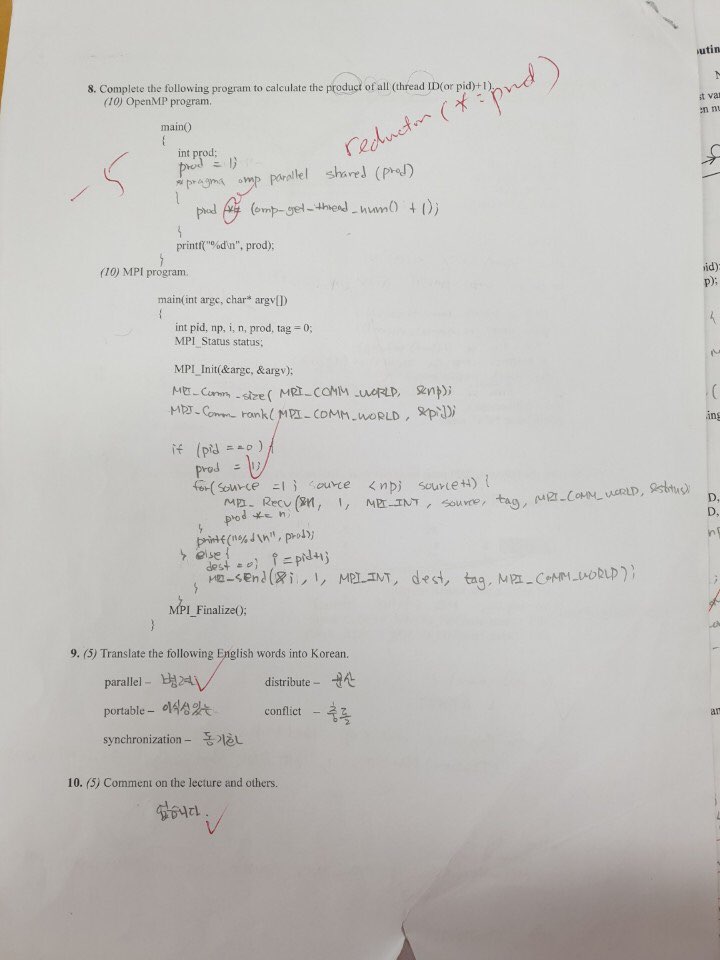 8. Complete the following program to calculate the product of all (thread ID(or pid)+1).
(10) OpenMP program.
reduction(*:prod)
main()
{
int prod;
prod = 1;
#pragma omp parallel shared (prod)
-5
{
prod *= (omp_get_thread_num() + 1);
}
printf("%d\n", prod);
}
(10) MPI program.
main(int argc, char* argv[])
{
int pid, np, i, n, prod, tag = 0;
MPI_Status status;
MPI_Init(&argc, &argv);
MPI_Comm_size( MPI_COMM_WORLD, &np);
MPI_Comm_rank( MPI_COMM_WORLD, &pid);
if (pid == 0) {
prod = 1;
for(source =1; source <np; source++) {
MPI_Recv(&n, 1, MPI_INT, source, tag, MPI_COMM_WORLD, &status);
prod *= n;
}
printf("%d\n", prod);
} else {
dest = 0; i = pid+1;
MPI_Send(&i, 1, MPI_INT, dest, tag, MPI_COMM_WORLD);
}
MPI_Finalize();
}
9. (5) Translate the following English words into Korean.
parallel – 병렬 distribute – 분산
portable – 이식성있는 conflict – 충돌
synchronization – 동기화
10. (5) Comment on the lecture and others.
없습니다.